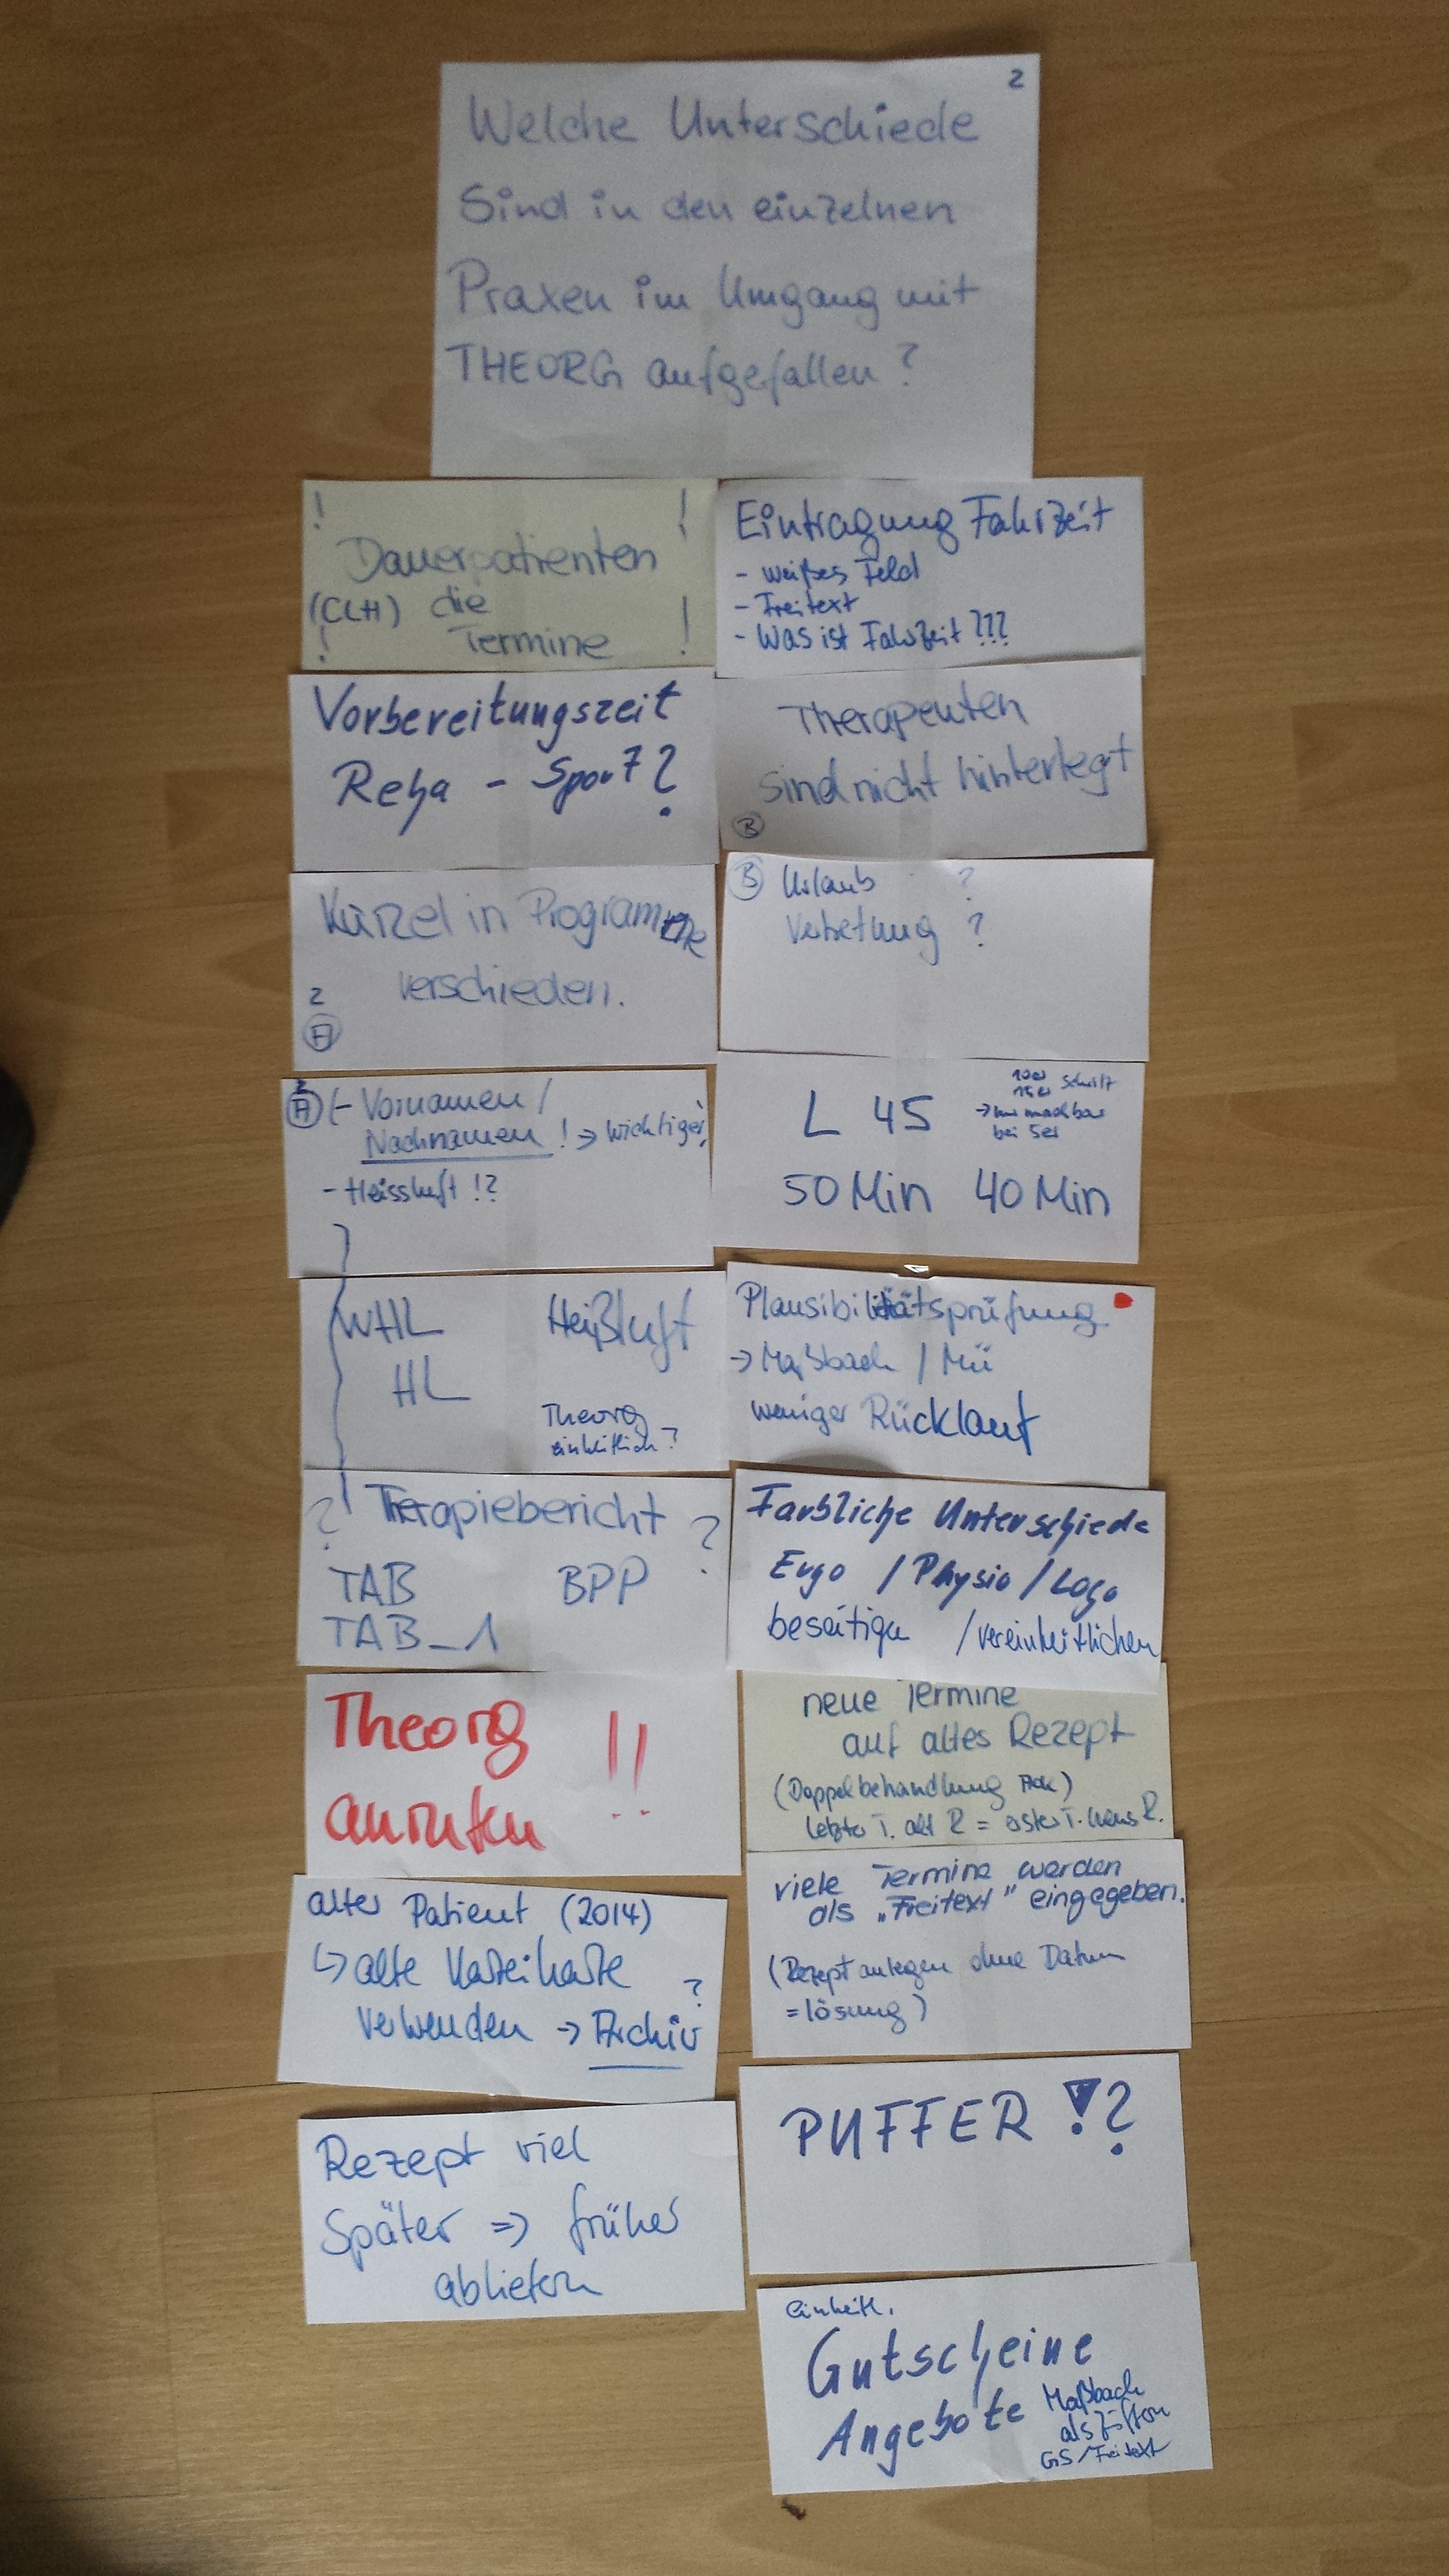 2
Welche Unterschiede
Sind in den einzelnen
Praxen im Umgang mit
THEORG aufgefallen ?
! !
Dauerpatienten
(CLH) die
! Termine !
Eintragung Fahrzeit
- weißes Feld
- Freitext
- Was ist Fahrzeit ???
Vorbereitungszeit
Reha - Sport ?
Therapeuten
sind nicht hinterlegt
B
Kürzel in Programme
verschieden.
2
A
B Urlaub ?
Vertretung ?
2
A - Vornamen /
Nachnamen ! → wichtiger
- Heissluft !?
L 45
10er Schritt
15er
→ nur machbar
bei 5er
50 Min 40 Min
WHL Heißluft
HL
Theorg
einheitlich ?
Plausibilitätsprüfung
→ Maßbach / Mü
weniger Rücklauf
? Therapiebericht ?
TAB BPP
TAB_1
Farbliche Unterschiede
Ergo / Physio / Logo
beseitigen / vereinheitlichen
Theorg !!
anrufen
neue Termine
auf altes Rezept
(Doppelbehandlung)
letzter T. alt R = erster T. neues R.
alter Patient (2014)
↳ alte Karteikarte ?
verwenden → Archiv
viele Termine werden
als „Freitext" eingegeben.
(Rezept anlegen ohne Datum
= lösung)
Rezept viel
Später ⇒ früher
abliefern
PUFFER !?
einheitl.
Gutscheine
Angebote Maßbach
als
GS/Freitext